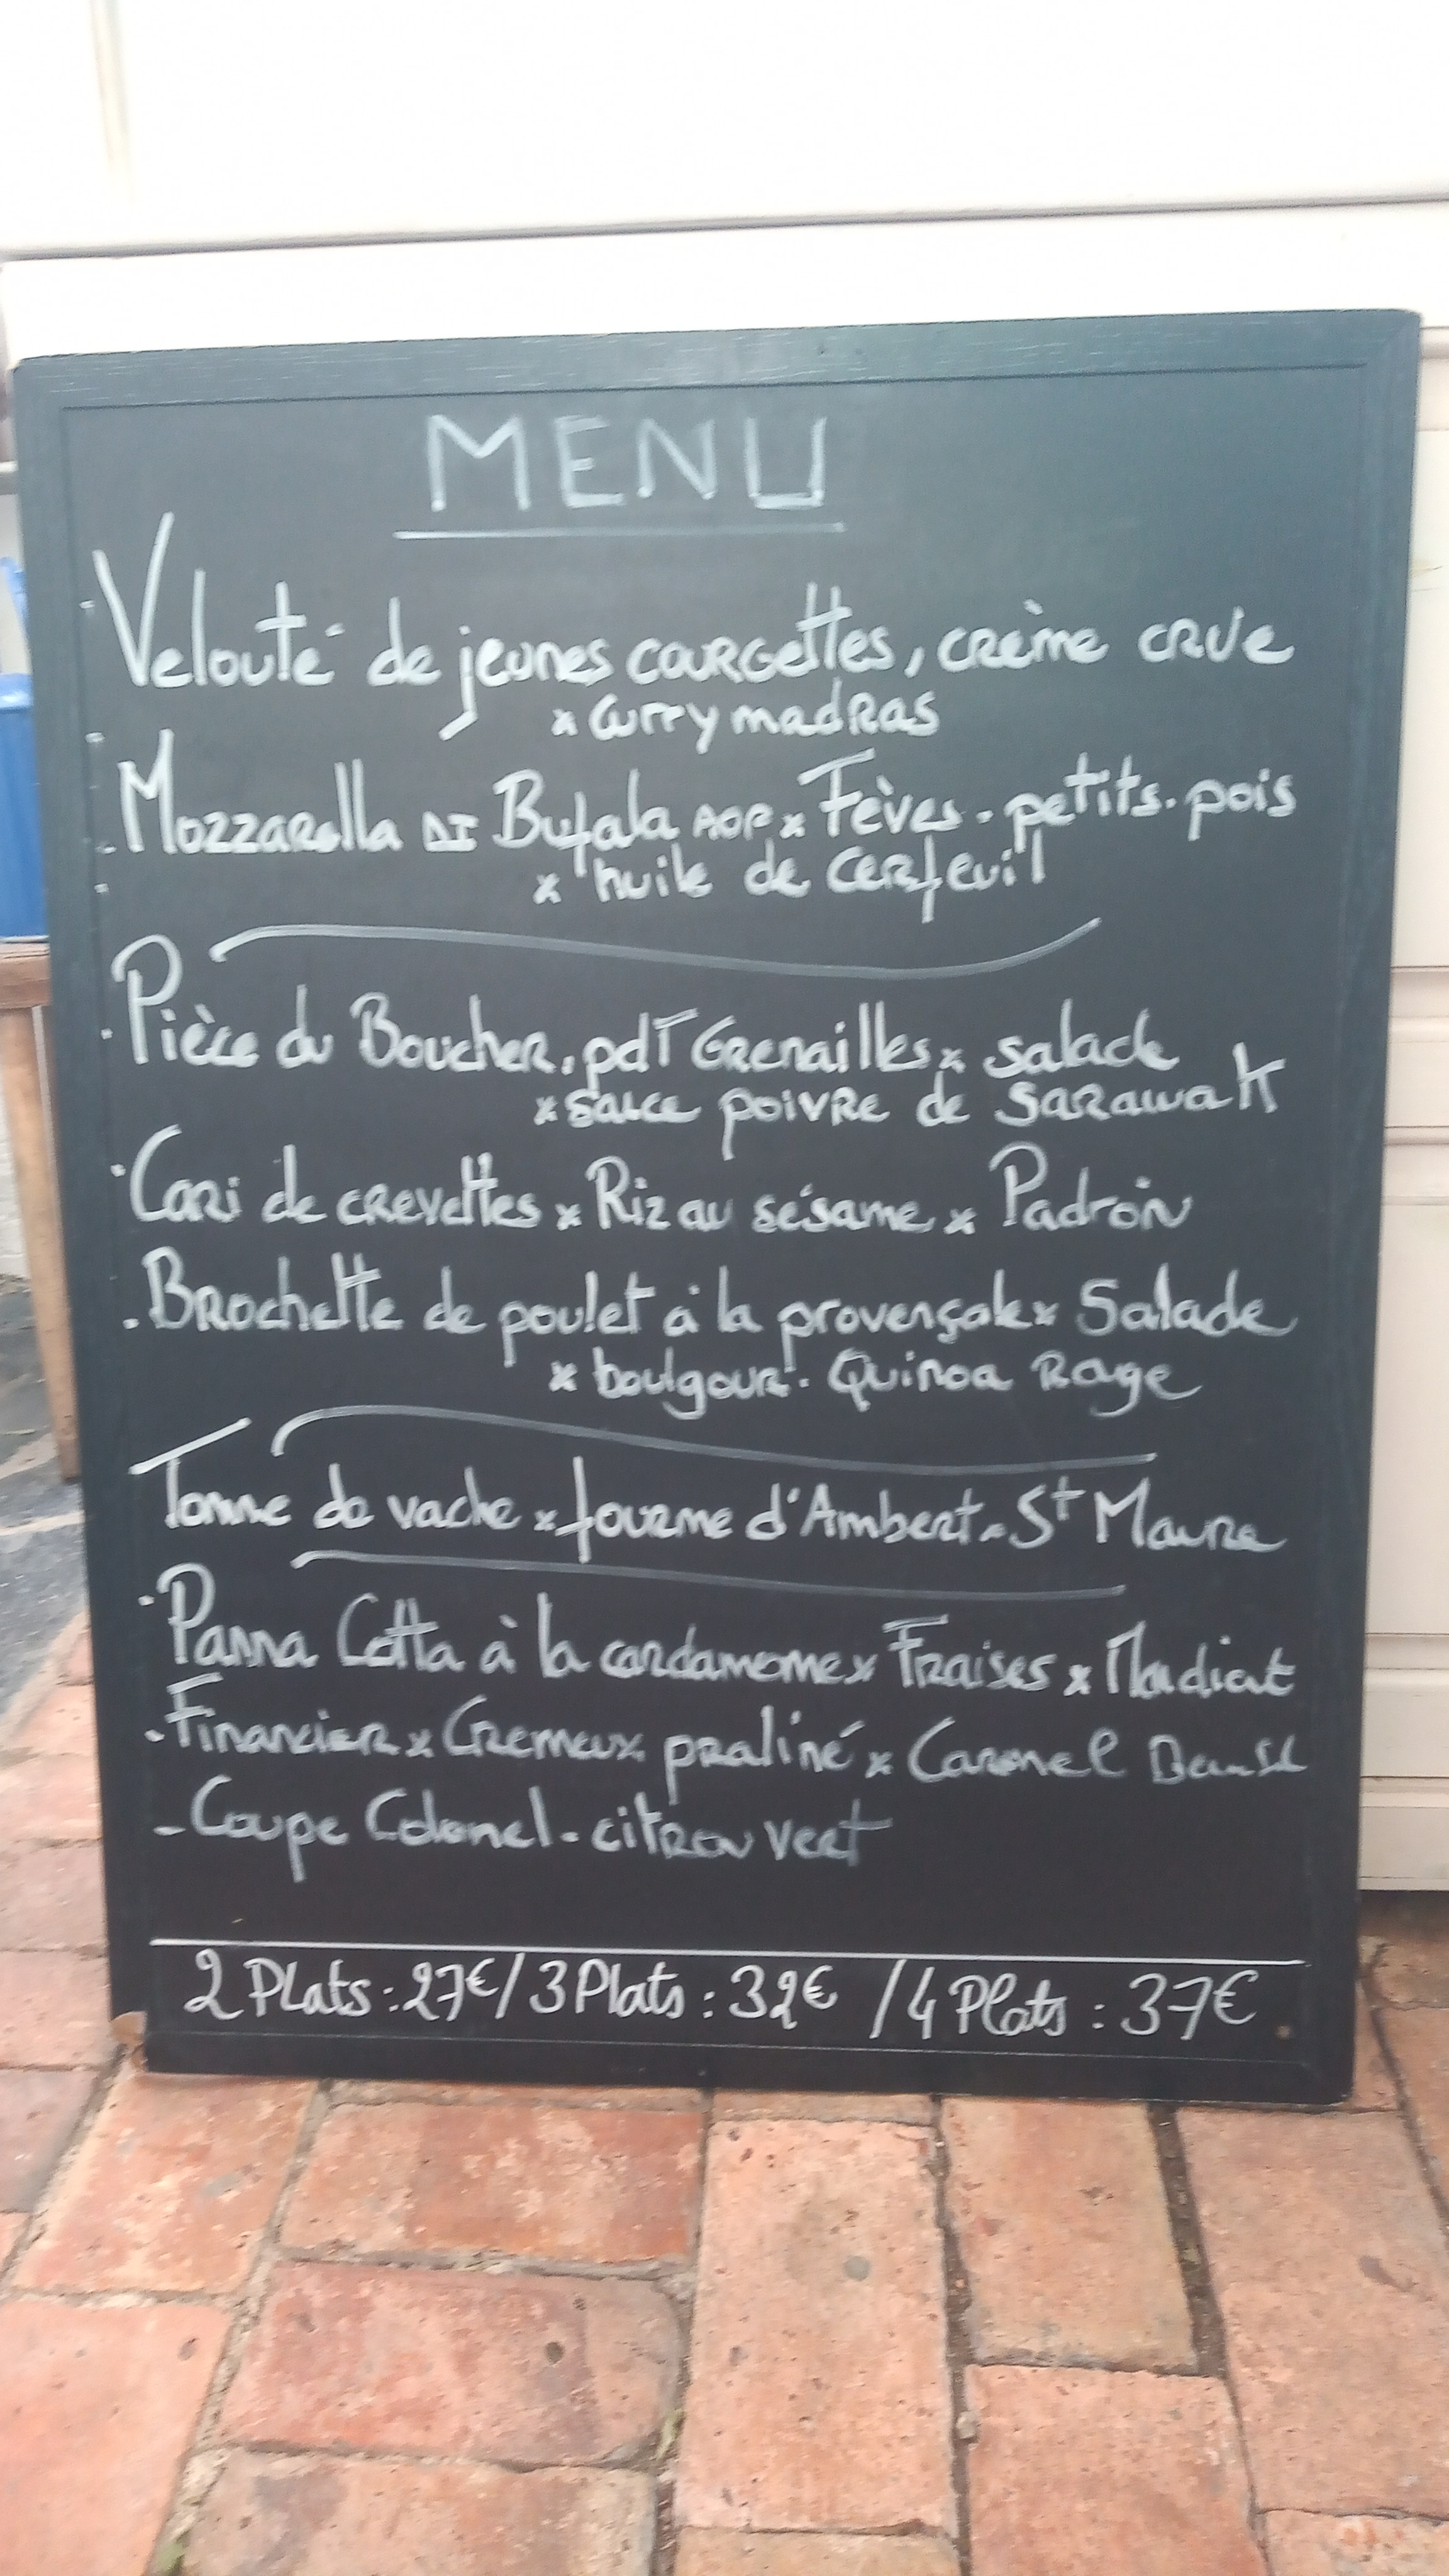 MENU
Velouté de jeunes courgettes, crème crue
x Curry madras
Mozzarella DI Bufala AOP x Fèves - petits-pois
x huile de cerfeuil
Pièce du Boucher, pdT Grenailles x salade
x sauce poivre de Sarawak
Cari de crevettes x Riz au sésame x Padron
Brochette de poulet à la provençale x Salade
x boulgour - Quinoa Rage
Tomme de vache x fourme d'Ambert - St Maure
Panna Cotta à la cardamome x Fraises x Mendiant
Financier x Crémeux praliné x Caramel
- Coupe Colonel - citron vert
2 Plats : 27€ / 3 Plats : 32€ / 4 Plats : 37€